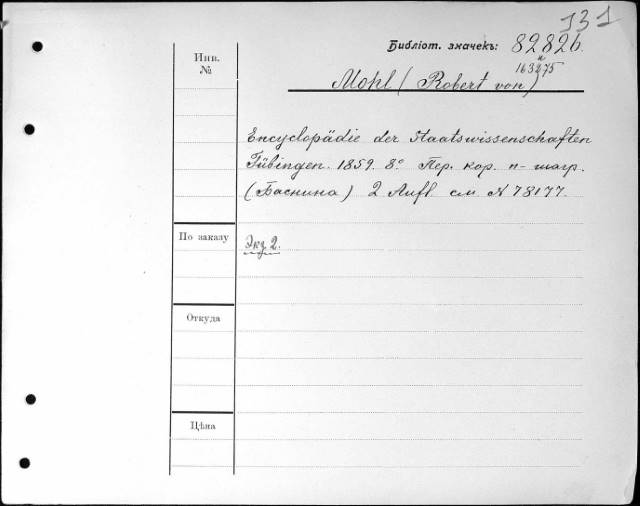 131
Библіот. значекъ: 82826.
и
163275
Инв.
№
Mohl (Robert von)
Encyclopädie der Staatswissenschaften
Tübingen. 1859. 8° Пер. кор. п-шагр.
(Баснина) 2 Aufl. см. N 78177.
По заказу
Экз. 2.
Откуда
Цѣна